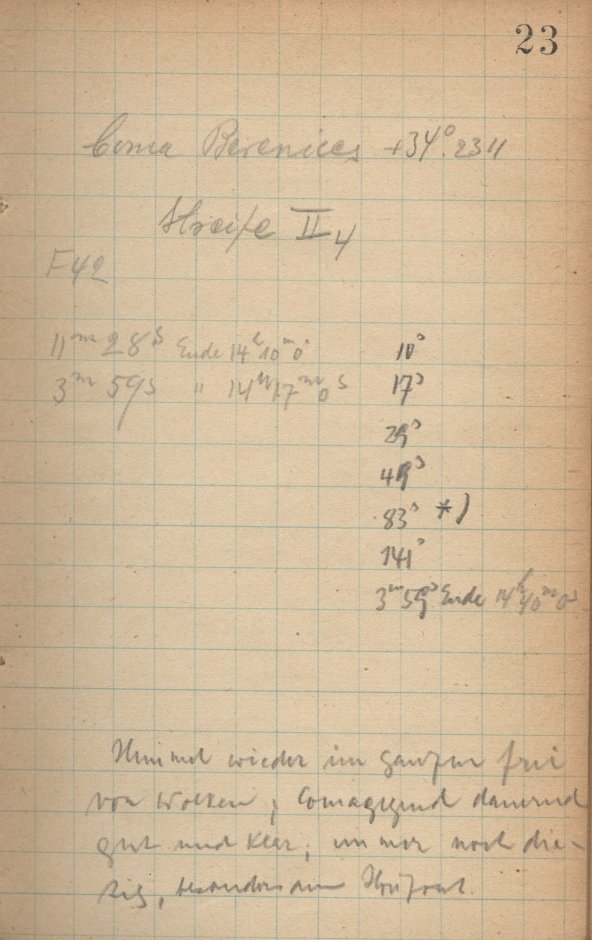 23
Coma Berenices +34°.2311
Streife II 4
F42
11ᵐ 28ˢ Ende 14ʰ10ᵐ0ˢ 10ˢ
3ᵐ 59ˢ " 14ʰ17ᵐ0ˢ 17ˢ
29ˢ
49ˢ
83ˢ *)
141ˢ
3ᵐ 59ˢ Ende 14ʰ40ᵐ0ˢ
Himmel wieder im ganzen frei
von Wolken; Comagegend dauernd
gut und klar; immer noch die-
sig, besonders am Horizont.